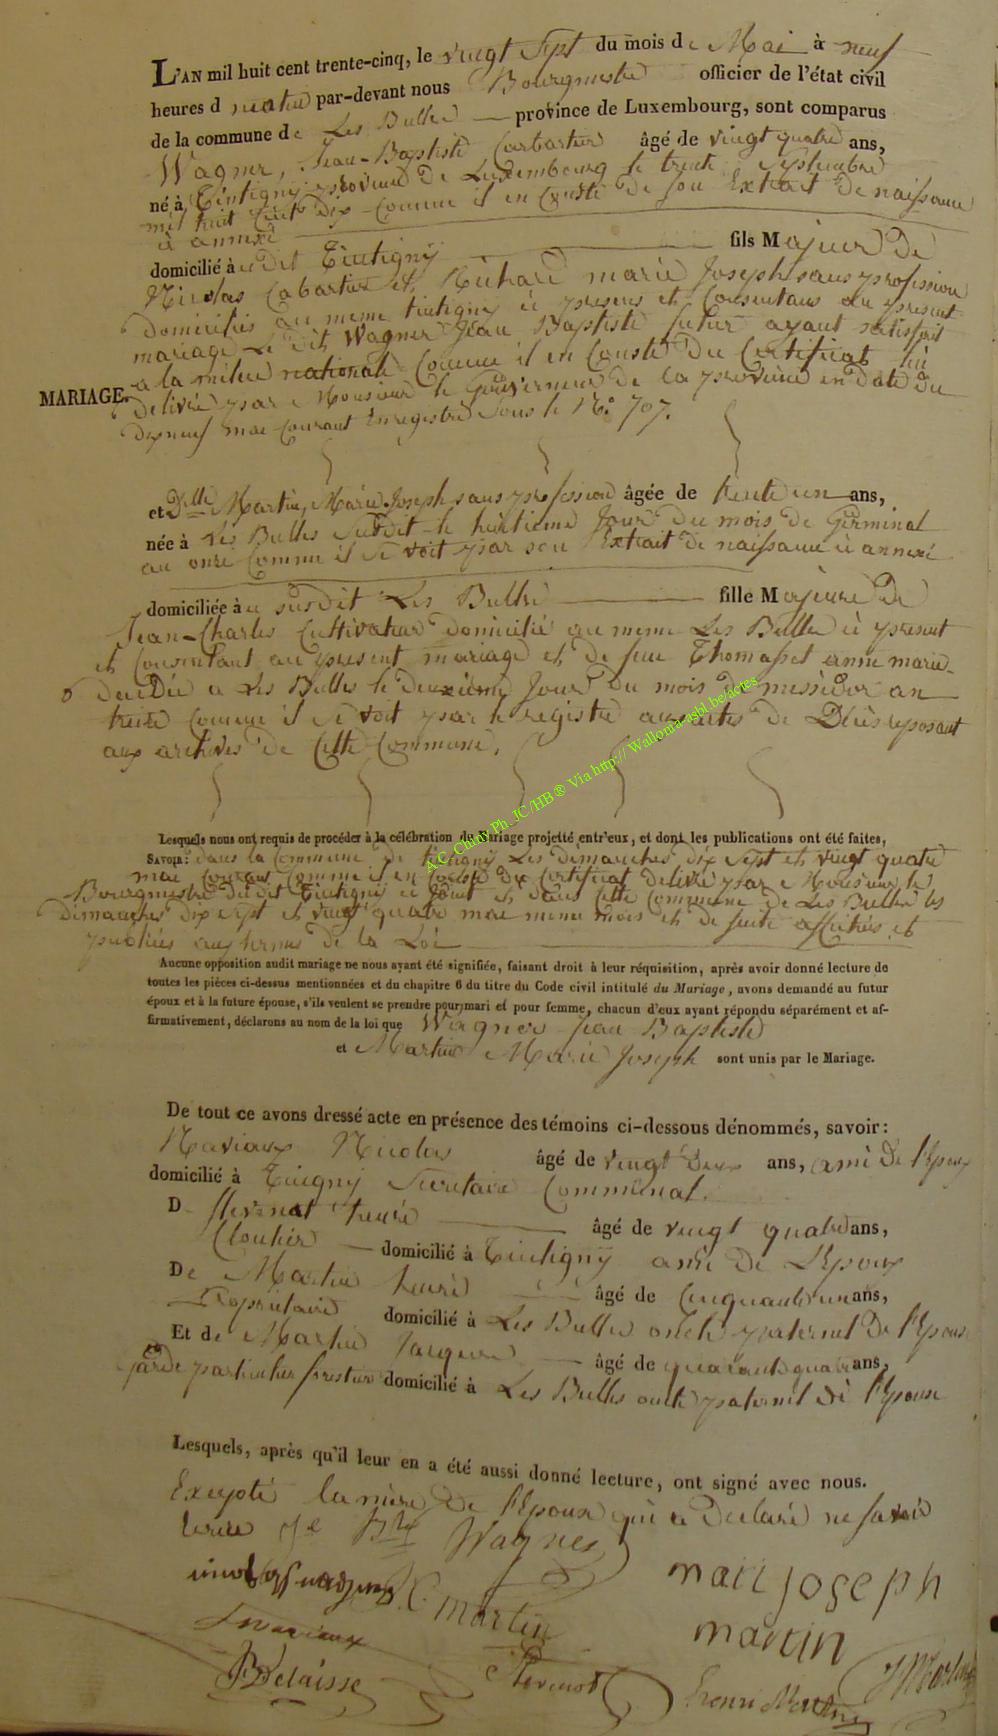 L'AN mil huit cent trente-cinq, le vingt Sept du mois de Mai à neuf
heures d matin par-devant nous Bourgmestre officier de l'état civil
de la commune de Les Bulles province de Luxembourg, sont comparus
Wagner, Jean-Baptiste Cabartier âgé de vingt quatre ans,
né à Tintigny province de Luxembourg le trente Septembre
mil huit cent dix comme il en conste de son Extrait de naissance
ci annexé
domicilié à dit Tintigny fils Majeur de
Nicolas Cabartier et Richard marie Joseph sans profession
domiciliés au meme tintigny ci presens et Consentans au present
mariage Le dit Wagner Jean Baptiste futur ayant satisfait
a la milice nationale comme il en Conste du Certificat lui
MARIAGE.
delivré par Monsieur le Gouverneur de la province en date du
dixneuf mai courant Enregistré sous le No 707.
et Delle Martin, Marie Joseph sans profession âgée de trente un ans,
née à Les Bulles susdit le huitieme Jour du mois de Germinal
an onze comme il se voit par son Extrait de naissance ci annexé
domiciliée à susdit Les Bulles fille Majeure de
Jean-Charles Cultivateur domicilié au meme Les Bulles ci present
et Consentant au present mariage et de feue Thomasset anne marie
décédée a Les Bulles le deuxieme Jour du mois de messidor an
treize comme il se voit par le registre aux actes de Décès reposant
aux archives de Cette Commune.
A.C. Chiny Ph. JC/HB® Via http:// Walloma-asbl.be/actes
Lesquels nous ont requis de procéder à la célébration du Mariage projetté entr'eux, et dont les publications ont été faites,
SAVOIR: dans la Commune de tintigny Les dimanches dix Sept et vingt quatre
mai courant Comme il en Conste du Certificat delivré par Monsieur le
Bourgmestre du dit Tintigny ci Joint et dans cette Commune de Les Bulles les
dimanches dix Sept et vingt quatre mai meme mois et de suite affichés et
publiées aux termes de la Loi
Aucune opposition audit mariage ne nous ayant été signifiée, faisant droit à leur réquisition, après avoir donné lecture de
toutes les pièces ci-dessus mentionnées et du chapitre 6 du titre du Code civil intitulé du Mariage, avons demandé au futur
époux et à la future épouse, s'ils veulent se prendre pour mari et pour femme, chacun d'eux ayant répondu séparément et af-
firmativement, déclarons au nom de la loi que Wagner Jean Baptiste
et Martin Marie Joseph sont unis par le Mariage.
De tout ce avons dressé acte en présence des témoins ci-dessous dénommés, savoir:
Naviaux Nicolas âgé de vingt Deux ans, ami de l'Epoux
domicilié à Tingny Secretaire Communal.
D Stevenot henri âgé de vingt quatre ans,
Cloutier domicilié à Tintigny ami de L'Epoux
De Martin henri âgé de Cinquante un ans,
Propriétaire domicilié à Les Bulles oncle paternel de l'Epouse
Et de Martin Jacques âgé de quarante quatre ans,
garde particulier forestier domicilié à Les Bulles oncle paternel de l'Epouse
Lesquels, après qu'il leur en a été aussi donné lecture, ont signé avec nous.
Excepté la mère de l'Epoux qui a declaré ne savoir
ecrire Je Bte Wagner
nicolas wagner J. C. martin mari joseph
martin
Naviaux
Delaisse Stevenot henri Martin J Martin